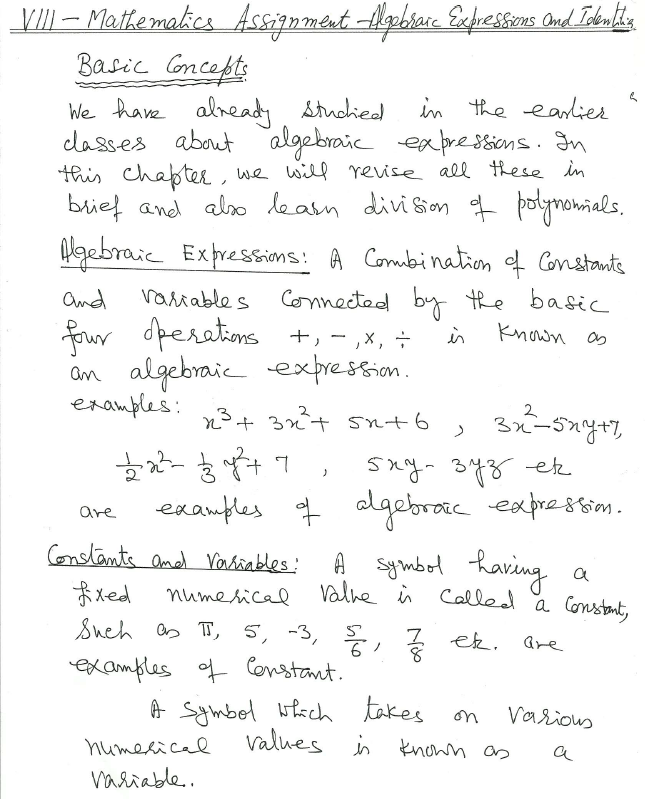 VIII - Mathematics Assignment - Algebraic Expressions and Identities
Basic Concepts
We have already studied in the earlier
classes about algebraic expressions. In
this chapter, we will revise all these in
brief and also learn division of polynomials.
Algebraic Expressions: A Combination of Constants
and variables Connected by the basic
four operations +, -, ×, ÷ is known as
an algebraic expression.
examples: x³ + 3x² + 5x + 6 , 3x² - 5xy + 7,
½x² - ⅓y² + 7 , 5xy - 3yz etc
are examples of algebraic expression.
Constants and Variables: A symbol having a
fixed numerical Value is Called a Constant,
Such as π, 5, -3, 5/6, 7/8 etc. are
examples of Constant.
A Symbol which takes on various
numerical values is known as a
variable.